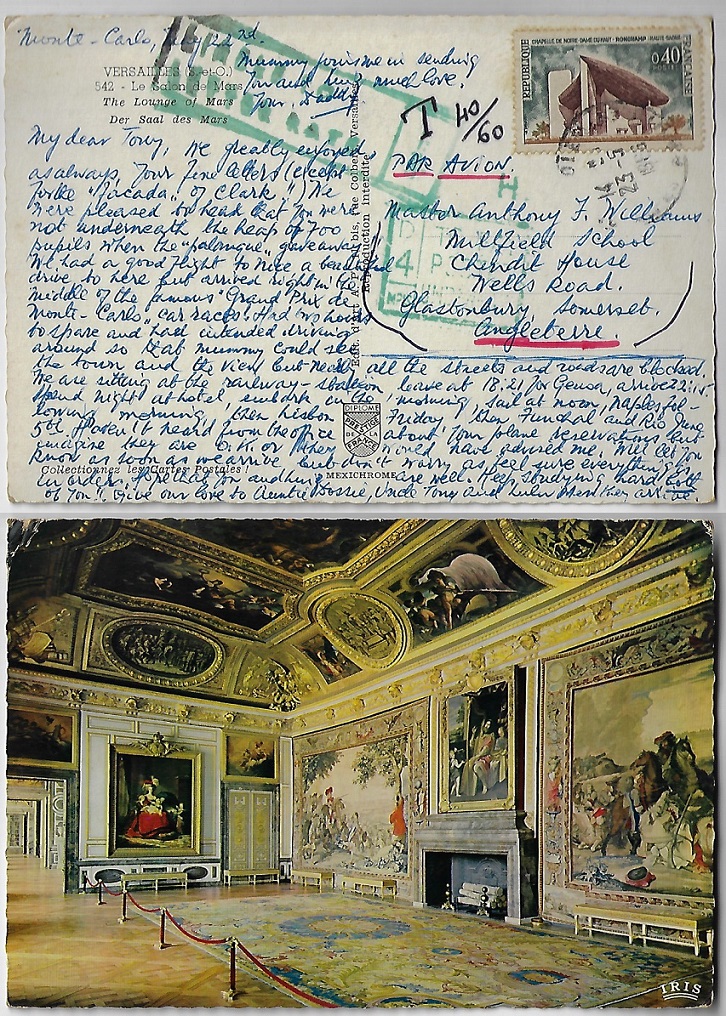 Monte-Carlo, May 22nd
Mummy joins me in sending
you and Lulu much love.
Your, Daddy
VERSAILLES (S.-et-O.)
542 - Le Salon de Mars
The Lounge of Mars
Der Saal des Mars
T 40/60
RÉPUBLIQUE FRANÇAISE
CHAPELLE DE NOTRE-DAME DU HAUT - RONCHAMP - HAUTE-SAÔNE
0,40
POSTES
PAR AVION
Master Anthony F. Williams
Millfield School
Chindit House
Wells Road.
Glastonbury, Somerset.
Angleterre.
My dear Tony, We greatly enjoyed
as always, your fine letters (except
for the "Jacada" of Clark"!) We
were pleased to hear that you were
not underneath the heap of 700
pupils when the gave away!
We had a good flight to Nice a beautiful
drive to here but arrived right in the
middle of the famous "Grand Prix de
Monte-Carlo" car races. Had two hours
to spare and had intended driving
around so that mummy could see
the town and the view but nearly all the streets and roads are blocked
We are sitting at the railway-station leave at 18.21 for Genoa, arrive 22.15.
Spend night at hotel embark in the morning, sail at noon, Naples fol-
lowing morning, then Lisbon Friday, then Funchal and Rio June
5th. Haven't heard from the office about your plane reservations but
imagine they are O.K. or they would have advised me. Will let you
know as soon as we arrive but don't worry as feel sure everything is
in order. Hope that you and Lulu are well. Keep studying hard both
of you!! Give our love to Auntie Bossie, Uncle Tony and Lulu when they
Edit. d'Art rue Colbert, Versailles
Reproduction interdite
DIPLOME
PRESTIGE
DE LA
FRANCE
MEXICHROME
Collectionnez les Cartes Postales !
IRIS